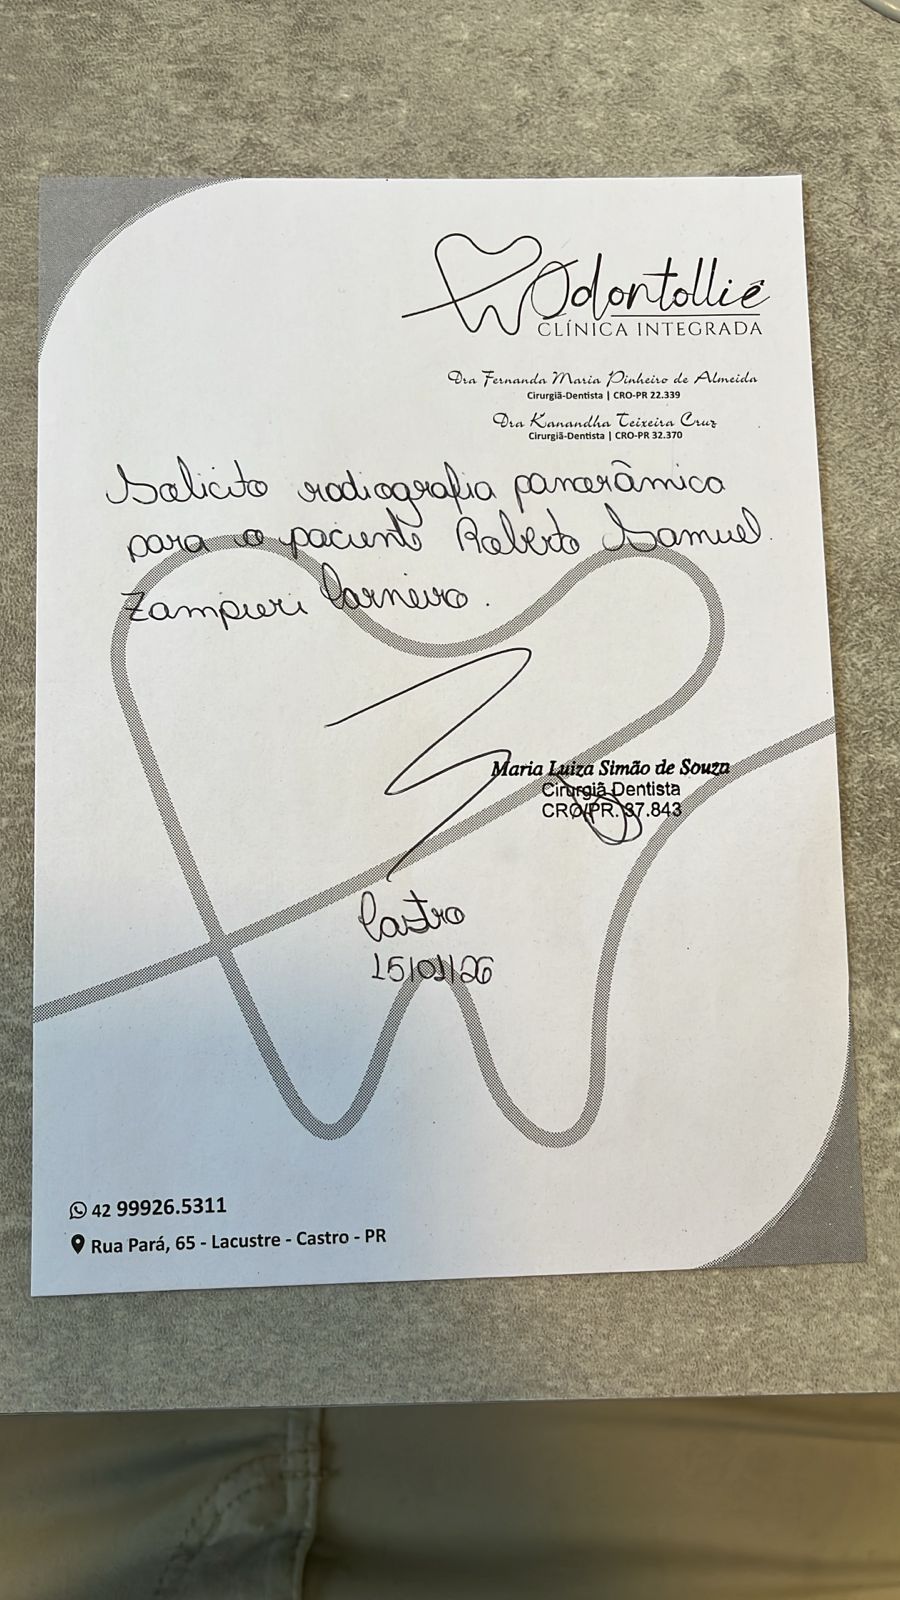 Odontollié
CLÍNICA INTEGRADA
Dra Fernanda Maria Pinheiro de Almeida
Cirurgiã-Dentista | CRO-PR 22.339
Dra Kanandha Teixeira Cruz
Cirurgiã-Dentista | CRO-PR 32.370
Solicito radiografia panorâmica
para o paciente Roberto Samuel
Zampieri Carneiro.
Maria Luiza Simão de Souza
Cirurgiã Dentista
CRO/PR. 37.843
Castro
15/01/26
42 99926.5311
Rua Pará, 65 - Lacustre - Castro - PR